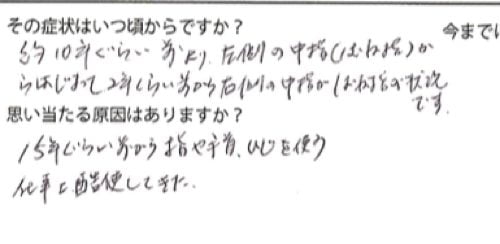 その症状はいつ頃からですか？
今まで
約10年ぐらい前より、左側の中指(ばね指)か
らはじまって2年くらい前から右側の中指がばね指の状況
です.
思い当たる原因はありますか？
15年ぐらい前から指や手首、ひじを使う
仕事で酷使してきた.